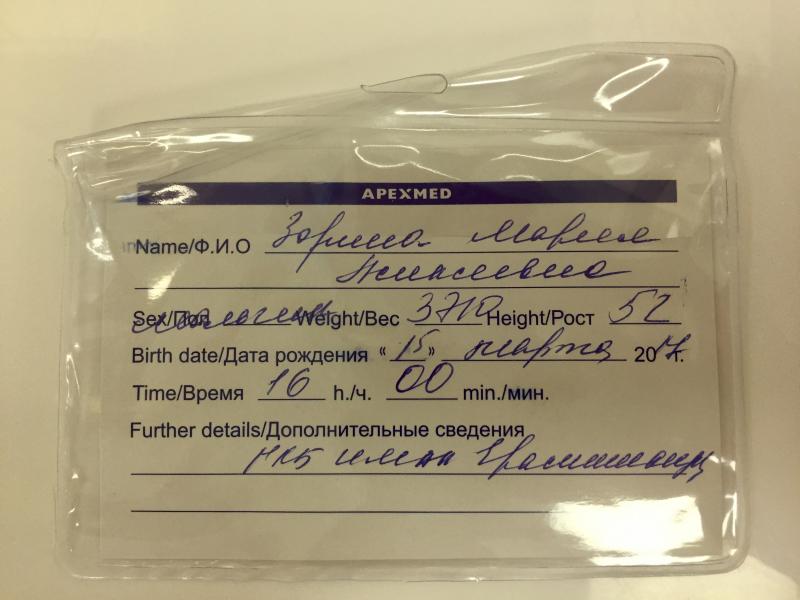 APEXMED
Name/Ф.И.О Зорина Мария
Sex/Пол мальчик Weight/Вес 3710 Height/Рост 52
Birth date/Дата рождения «15» марта 2017г.
Time/Время 16 h./ч. 00 min./мин.
Further details/Дополнительные сведения
ГКБ имени Ерамишанцева